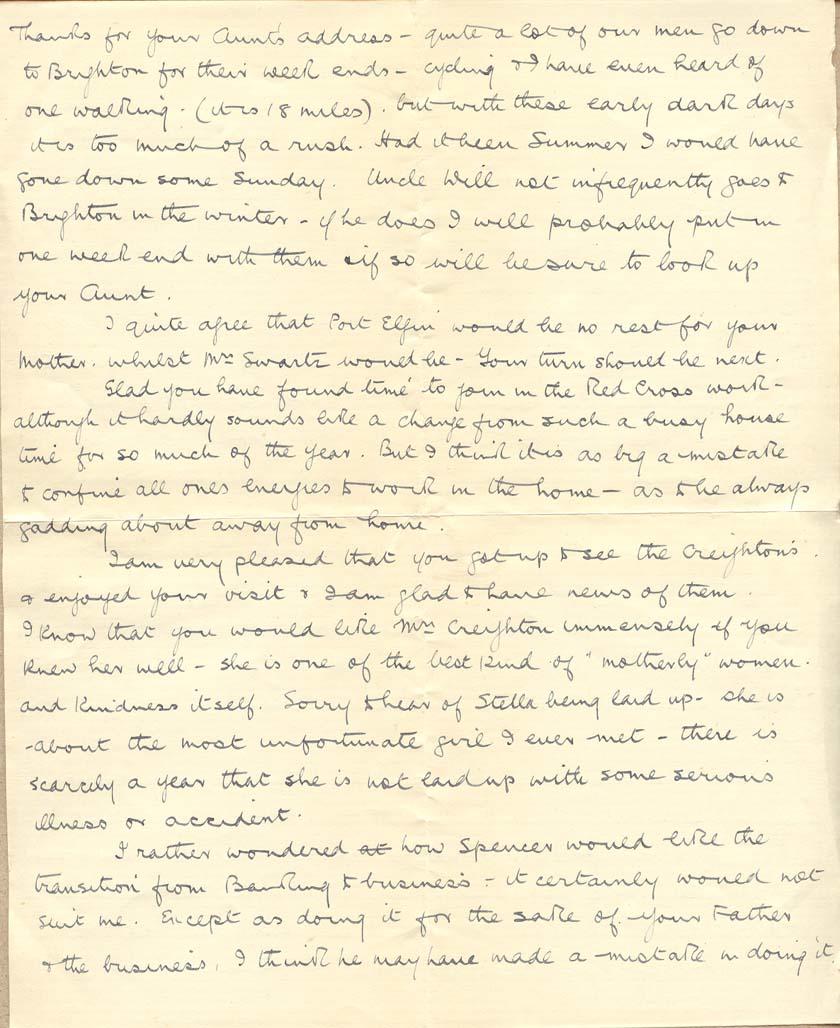 Thanks for your Aunt's address – quite a lot of our men go down
to Brighton for their week ends – cycling & I have even heard of
one walking. (it is 18 miles). but with these early dark days
it is too much of a rush. Had it been Summer I would have
gone down some Sunday. Uncle Will not infrequently goes to
Brighton in the winter – if he does I will probably put in
one week end with them & if so will be sure to look up
your Aunt.
I quite agree that Port Elgin would be no rest for your
Mother. whilst Mrs Swartz would be – Your turn should be next.
Glad you have found time to join in the Red Cross work –
although it hardly sounds like a change from such a busy house
time for so much of the year. But I think it is as big a mistake
to confine all ones energies to work in the home – as to be always
gadding about away from home.
I am very pleased that you got up to see the Creighton's.
& enjoyed your visit & I am glad to have news of them.
I know that you would like Mrs Creighton immensely if you
knew her well – she is one of the best kind of "motherly" women.
and kindness itself. Sorry to hear of Stella being laid up – she is
about the most unfortunate girl I ever met – there is
scarcely a year that she is not laid up with some serious
illness or accident.
I rather wondered at how Spencer would like the
transition from Banking to business – it certainly would not
suit me. Except as doing it for the sake of your Father
& the business, I think he may have made a mistake in doing it.